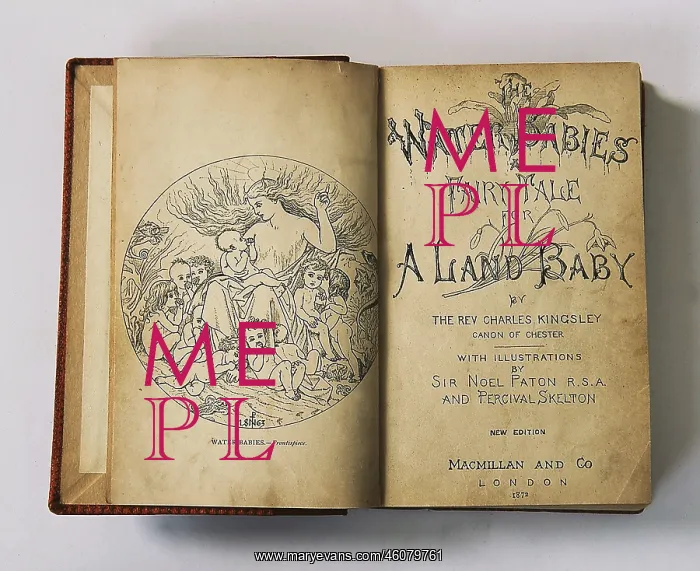 WATER BABIES.—Frontispiece.
THE
WATER BABIES
A
FAIRY TALE
FOR
A LAND BABY
BY
THE REV CHARLES KINGSLEY
CANON OF CHESTER
WITH ILLUSTRATIONS
BY
SIR NOEL PATON R.S.A.
AND PERCIVAL SKELTON
NEW EDITION
MACMILLAN AND CO
LONDON
1872
ME
PL
ME
PL
www.maryevans.com/46079761